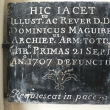 HIC IACET
ILLUST. AC REVER. D. D.
DOMINICUS MAGUIRE
ARCHIEP. ARM. TOTI
HIB. PRIMAS 21 SEP.
AN. 1707 DEFUNCT
Requiescat in pace